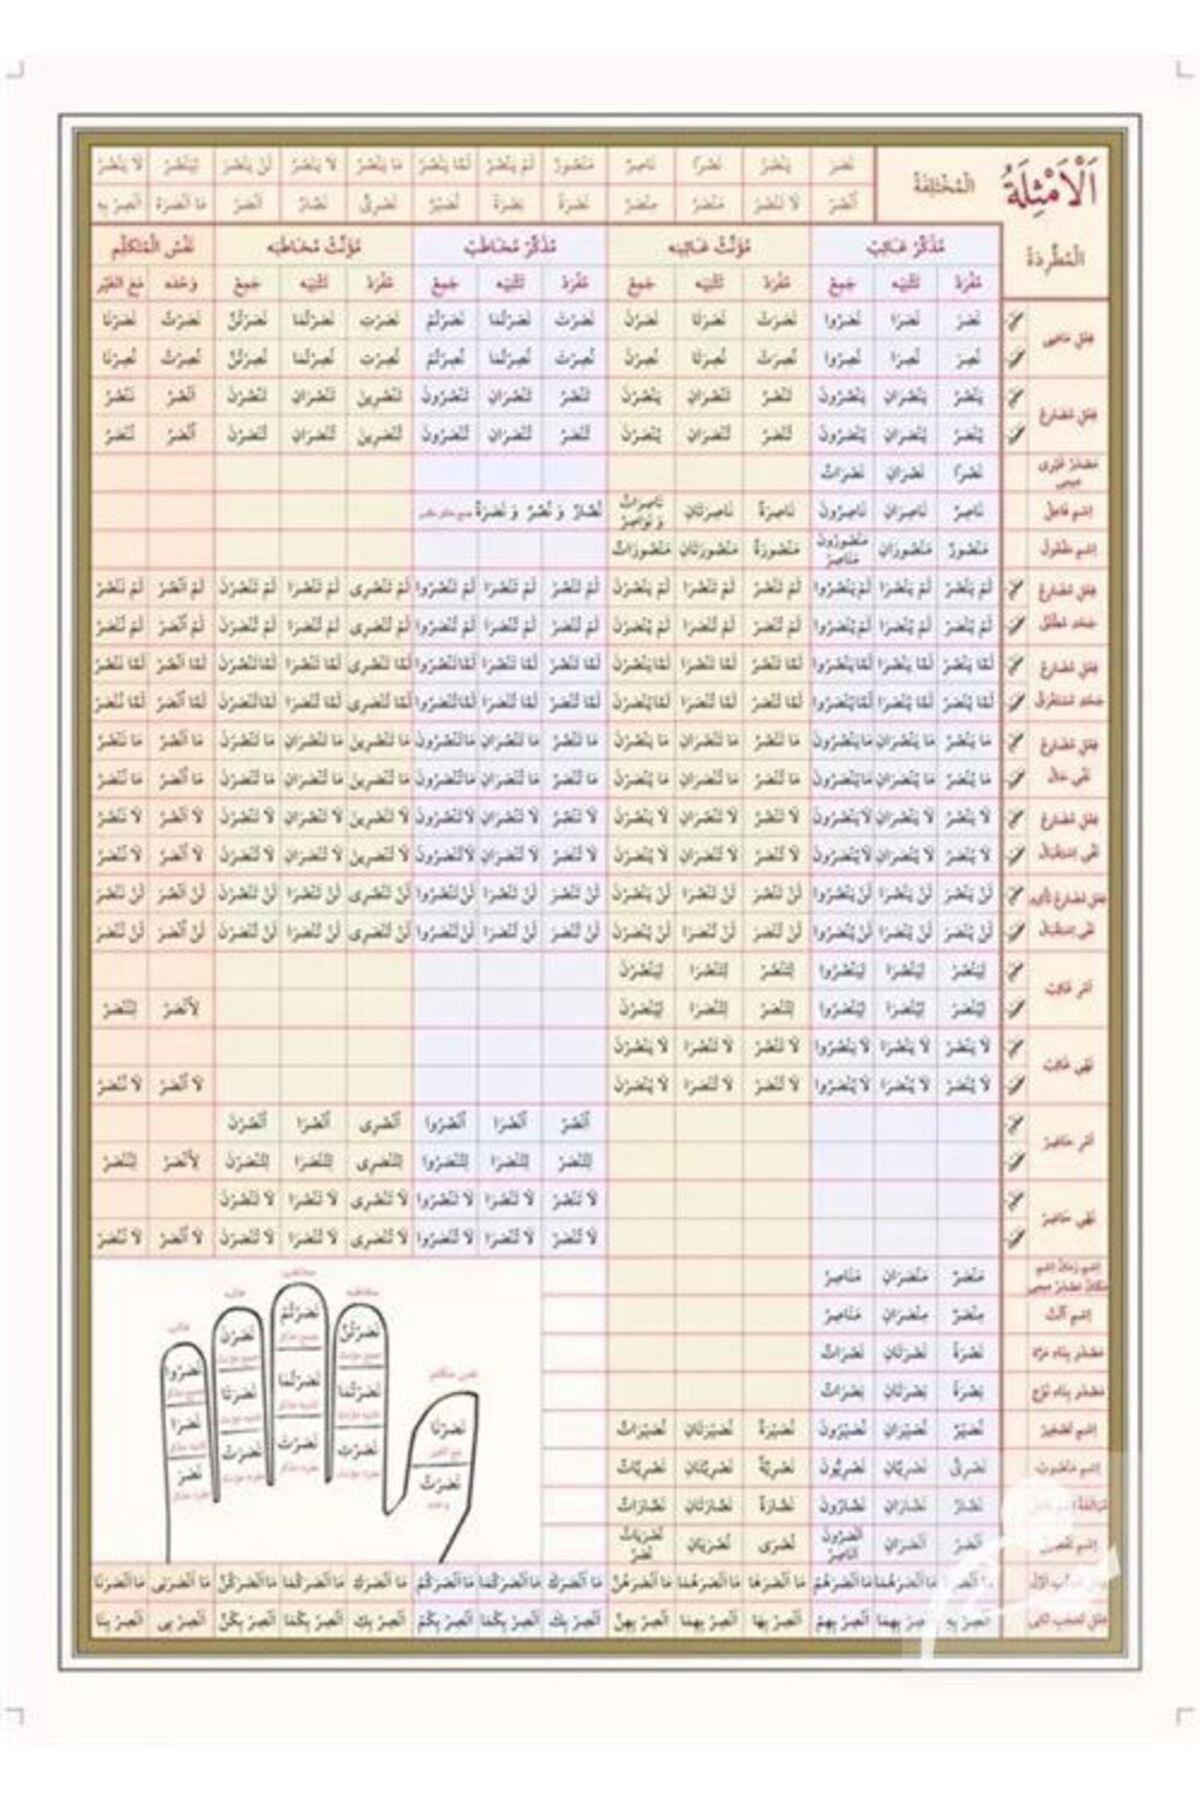 اَلْاَمْثِلَةُ الْمُخْتَلِفَةُ نَصَرَ يَنْصُرُ نَصْرًا نَاصِرٌ مَنْصُورٌ لَمْ يَنْصُرْ لَمَّا يَنْصُرْ مَا يَنْصُرُ لَا يَنْصُرُ لَنْ يَنْصُرَ لِيَنْصُرْ لَا يَنْصُرْ
اُنْصُرْ لَا تَنْصُرْ مَنْصَرٌ مِنْصَرٌ نَصْرَةً نِصْرَةً نُصَيْرٌ نَصْرِىٌّ نَصَّارٌ اَنْصَرُ مَا اَنْصَرَهُ اَنْصِرْ بِهِ
الْمُطَّرِدَةُ مُذَكَّرْ غَائِبْ مُؤَنَّثْ غَائِبَه مُذَكَّرْ مُخَاطَبْ مُؤَنَّثْ مُخَاطَبَه نَفْسُ الْمُتَكَلِّمِ
مُفْرَدْ تَثْنِيَه جَمِعْ مُفْرَدْ تَثْنِيَه جَمِعْ مُفْرَدْ تَثْنِيَه جَمِعْ مُفْرَدْ تَثْنِيَه جَمِعْ وَحْدَه مَعَ الْغَيْرِ
فِعْلِ مَاضِى نَصَرَ نَصَرَا نَصَرُوا نَصَرَتْ نَصَرَتَا نَصَرْنَ نَصَرْتَ نَصَرْتُمَا نَصَرْتُمْ نَصَرْتِ نَصَرْتُمَا نَصَرْتُنَّ نَصَرْتُ نَصَرْنَا
نُصِرَ نُصِرَا نُصِرُوا نُصِرَتْ نُصِرَتَا نُصِرْنَ نُصِرْتَ نُصِرْتُمَا نُصِرْتُمْ نُصِرْتِ نُصِرْتُمَا نُصِرْتُنَّ نُصِرْتُ نُصِرْنَا
فِعْلِ مُضَارِعْ يَنْصُرُ يَنْصُرَانِ يَنْصُرُونَ تَنْصُرُ تَنْصُرَانِ يَنْصُرْنَ تَنْصُرُ تَنْصُرَانِ تَنْصُرُونَ تَنْصُرِينَ تَنْصُرَانِ تَنْصُرْنَ اَنْصُرُ نَنْصُرُ
يُنْصَرُ يُنْصَرَانِ يُنْصَرُونَ تُنْصَرُ تُنْصَرَانِ يُنْصَرْنَ تُنْصَرُ تُنْصَرَانِ تُنْصَرُونَ تُنْصَرِينَ تُنْصَرَانِ تُنْصَرْنَ اُنْصَرُ نُنْصَرُ
مَصْدَرْ غَيْرِى مِيمِى نَصْرًا نَصْرَانِ نَصْرَاتٌ
اِسْمِ فَاعِلْ نَاصِرٌ نَاصِرَانِ نَاصِرُونَ نَاصِرَةٌ نَاصِرَتَانِ نَاصِرَاتٌ وَ نَوَاصِرُ نُصَّارٌ وَ نُصَّرٌ وَ نَصَرَةٌ
اِسْمِ مَفْعُولْ مَنْصُورٌ مَنْصُورَانِ مَنْصُورُونَ مَنَاصِرُ مَنْصُورَةٌ مَنْصُورَتَانِ مَنْصُورَاتٌ
فِعْلِ مُضَارِعْ لَمْ يَنْصُرْ لَمْ يَنْصُرَا لَمْ يَنْصُرُوا لَمْ تَنْصُرْ لَمْ تَنْصُرَا لَمْ يَنْصُرْنَ لَمْ تَنْصُرْ لَمْ تَنْصُرَا لَمْ تَنْصُرُوا لَمْ تَنْصُرِى لَمْ تَنْصُرَا لَمْ تَنْصُرْنَ لَمْ اَنْصُرْ لَمْ نَنْصُرْ
جَحْدِ مُطْلَقْ لَمْ يُنْصَرْ لَمْ يُنْصَرَا لَمْ يُنْصَرُوا لَمْ تُنْصَرْ لَمْ تُنْصَرَا لَمْ يُنْصَرْنَ لَمْ تُنْصَرْ لَمْ تُنْصَرَا لَمْ تُنْصَرُوا لَمْ تُنْصَرِى لَمْ تُنْصَرَا لَمْ تُنْصَرْنَ لَمْ اُنْصَرْ لَمْ نُنْصَرْ
فِعْلِ مُضَارِعْ لَمَّا يَنْصُرْ لَمَّا يَنْصُرَا لَمَّا يَنْصُرُوا لَمَّا تَنْصُرْ لَمَّا تَنْصُرَا لَمَّا يَنْصُرْنَ لَمَّا تَنْصُرْ لَمَّا تَنْصُرَا لَمَّا تَنْصُرُوا لَمَّا تَنْصُرِى لَمَّا تَنْصُرَا لَمَّا تَنْصُرْنَ لَمَّا اَنْصُرْ لَمَّا نَنْصُرْ
جَحْدِ مُسْتَغْرَقْ لَمَّا يُنْصَرْ لَمَّا يُنْصَرَا لَمَّا يُنْصَرُوا لَمَّا تُنْصَرْ لَمَّا تُنْصَرَا لَمَّا يُنْصَرْنَ لَمَّا تُنْصَرْ لَمَّا تُنْصَرَا لَمَّا تُنْصَرُوا لَمَّا تُنْصَرِى لَمَّا تُنْصَرَا لَمَّا تُنْصَرْنَ لَمَّا اُنْصَرْ لَمَّا نُنْصَرْ
فِعْلِ مُضَارِعْ مَا يَنْصُرُ مَا يَنْصُرَانِ مَا يَنْصُرُونَ مَا تَنْصُرُ مَا تَنْصُرَانِ مَا يَنْصُرْنَ مَا تَنْصُرُ مَا تَنْصُرَانِ مَا تَنْصُرُونَ مَا تَنْصُرِينَ مَا تَنْصُرَانِ مَا تَنْصُرْنَ مَا اَنْصُرُ مَا نَنْصُرُ
نَفْىِ حَالْ مَا يُنْصَرُ مَا يُنْصَرَانِ مَا يُنْصَرُونَ مَا تُنْصَرُ مَا تُنْصَرَانِ مَا يُنْصَرْنَ مَا تُنْصَرُ مَا تُنْصَرَانِ مَا تُنْصَرُونَ مَا تُنْصَرِينَ مَا تُنْصَرَانِ مَا تُنْصَرْنَ مَا اُنْصَرُ مَا نُنْصَرُ
فِعْلِ مُضَارِعْ لَا يَنْصُرُ لَا يَنْصُرَانِ لَا يَنْصُرُونَ لَا تَنْصُرُ لَا تَنْصُرَانِ لَا يَنْصُرْنَ لَا تَنْصُرُ لَا تَنْصُرَانِ لَا تَنْصُرُونَ لَا تَنْصُرِينَ لَا تَنْصُرَانِ لَا تَنْصُرْنَ لَا اَنْصُرُ لَا نَنْصُرُ
نَفْىِ اِسْتِقْبَالْ لَا يُنْصَرُ لَا يُنْصَرَانِ لَا يُنْصَرُونَ لَا تُنْصَرُ لَا تُنْصَرَانِ لَا يُنْصَرْنَ لَا تُنْصَرُ لَا تُنْصَرَانِ لَا تُنْصَرُونَ لَا تُنْصَرِينَ لَا تُنْصَرَانِ لَا تُنْصَرْنَ لَا اُنْصَرُ لَا نُنْصَرُ
فِعْلِ مُضَارِعْ تَأْكِيدِ لَنْ يَنْصُرَ لَنْ يَنْصُرَا لَنْ يَنْصُرُوا لَنْ تَنْصُرَ لَنْ تَنْصُرَا لَنْ يَنْصُرْنَ لَنْ تَنْصُرَ لَنْ تَنْصُرَا لَنْ تَنْصُرُوا لَنْ تَنْصُرِى لَنْ تَنْصُرَا لَنْ تَنْصُرْنَ لَنْ اَنْصُرَ لَنْ نَنْصُرَ
نَفْىِ اِسْتِقْبَالْ لَنْ يُنْصَرَ لَنْ يُنْصَرَا لَنْ يُنْصَرُوا لَنْ تُنْصَرَ لَنْ تُنْصَرَا لَنْ يُنْصَرْنَ لَنْ تُنْصَرَ لَنْ تُنْصَرَا لَنْ تُنْصَرُوا لَنْ تُنْصَرِى لَنْ تُنْصَرَا لَنْ تُنْصَرْنَ لَنْ اُنْصَرَ لَنْ نُنْصَرَ
اَمْرِ غَائِبْ لِيَنْصُرْ لِيَنْصُرَا لِيَنْصُرُوا لِتَنْصُرْ لِتَنْصُرَا لِيَنْصُرْنَ
لِيُنْصَرْ لِيُنْصَرَا لِيُنْصَرُوا لِتُنْصَرْ لِتُنْصَرَا لِيُنْصَرْنَ لِاُنْصَرْ لِنُنْصَرْ
نَهْىِ غَائِبْ لَا يَنْصُرْ لَا يَنْصُرَا لَا يَنْصُرُوا لَا تَنْصُرْ لَا تَنْصُرَا لَا يَنْصُرْنَ
لَا يُنْصَرْ لَا يُنْصَرَا لَا يُنْصَرُوا لَا تُنْصَرْ لَا تُنْصَرَا لَا يُنْصَرْنَ لَا اُنْصَرْ لَا نُنْصَرْ
اَمْرِ حَاضِرْ اُنْصُرْ اُنْصُرَا اُنْصُرُوا اُنْصُرِى اُنْصُرَا اُنْصُرْنَ
لِتُنْصَرْ لِتُنْصَرَا لِتُنْصَرُوا لِتُنْصَرِى لِتُنْصَرَا لِتُنْصَرْنَ لِاُنْصَرْ لِنُنْصَرْ
نَهْىِ حَاضِرْ لَا تَنْصُرْ لَا تَنْصُرَا لَا تَنْصُرُوا لَا تَنْصُرِى لَا تَنْصُرَا لَا تَنْصُرْنَ
لَا تُنْصَرْ لَا تُنْصَرَا لَا تُنْصَرُوا لَا تُنْصَرِى لَا تُنْصَرَا لَا تُنْصَرْنَ لَا اُنْصَرْ لَا نُنْصَرْ
اِسْمِ زَمَانْ اِسْمِ مَكَانْ مَصْدَرْ مِيمِى مَنْصَرٌ مَنْصَرَانِ مَنَاصِرُ
اِسْمِ آلَتْ مِنْصَرٌ مِنْصَرَانِ مَنَاصِرُ
مَصْدَرْ بِنَاءِ مَرَّه نَصْرَةً نَصْرَتَانِ نَصَرَاتٌ
مَصْدَرْ بِنَاءِ نَوْعْ نِصْرَةً نِصْرَتَانِ نِصْرَاتٌ
اِسْمِ تَصْغِيرْ نُصَيْرٌ نُصَيْرَانِ نُصَيْرُونَ نُصَيْرَةٌ نُصَيْرَتَانِ نُصَيْرَاتٌ
اِسْمِ مَنْسُوبْ نَصْرِىٌّ نَصْرِيَّانِ نَصْرِيُّونَ نَصْرِيَّةٌ نَصْرِيَّتَانِ نَصْرِيَّاتٌ
نَصَّارٌ نَصَّارَانِ نَصَّارُونَ نَصَّارَةٌ نَصَّارَتَانِ نَصَّارَاتٌ
اِسْمِ تَفْضِيلْ اَنْصَرُ اَنْصَرَانِ اَنْصَرُونَ اَنَاصِرُ نُصْرَى نُصْرَيَانِ نُصْرَيَاتٌ نُصَرٌ
مَا اَنْصَرَهُ مَا اَنْصَرَهُمَا مَا اَنْصَرَهُمْ مَا اَنْصَرَهَا مَا اَنْصَرَهُمَا مَا اَنْصَرَهُنَّ مَا اَنْصَرَكَ مَا اَنْصَرَكُمَا مَا اَنْصَرَكُمْ مَا اَنْصَرَكِ مَا اَنْصَرَكُمَا مَا اَنْصَرَكُنَّ مَا اَنْصَرَنِى مَا اَنْصَرَنَا
فِعْلِ تَعَجُّبِ ثَانِى اَنْصِرْ بِهِ اَنْصِرْ بِهِمَا اَنْصِرْ بِهِمْ اَنْصِرْ بِهَا اَنْصِرْ بِهِمَا اَنْصِرْ بِهِنَّ اَنْصِرْ بِكَ اَنْصِرْ بِكُمَا اَنْصِرْ بِكُمْ اَنْصِرْ بِكِ اَنْصِرْ بِكُمَا اَنْصِرْ بِكُنَّ اَنْصِرْ بِى اَنْصِرْ بِنَا
نَصَرْنَا
نَصَرْتُ
نَصَرْتُنَّ
نَصَرْتُمَا
نَصَرْتِ
نَصَرْتُمْ
نَصَرْتُمَا
نَصَرْتَ
نَصَرْنَ
نَصَرَتَا
نَصَرَتْ
نَصَرُوا
نَصَرَا
نَصَرَ